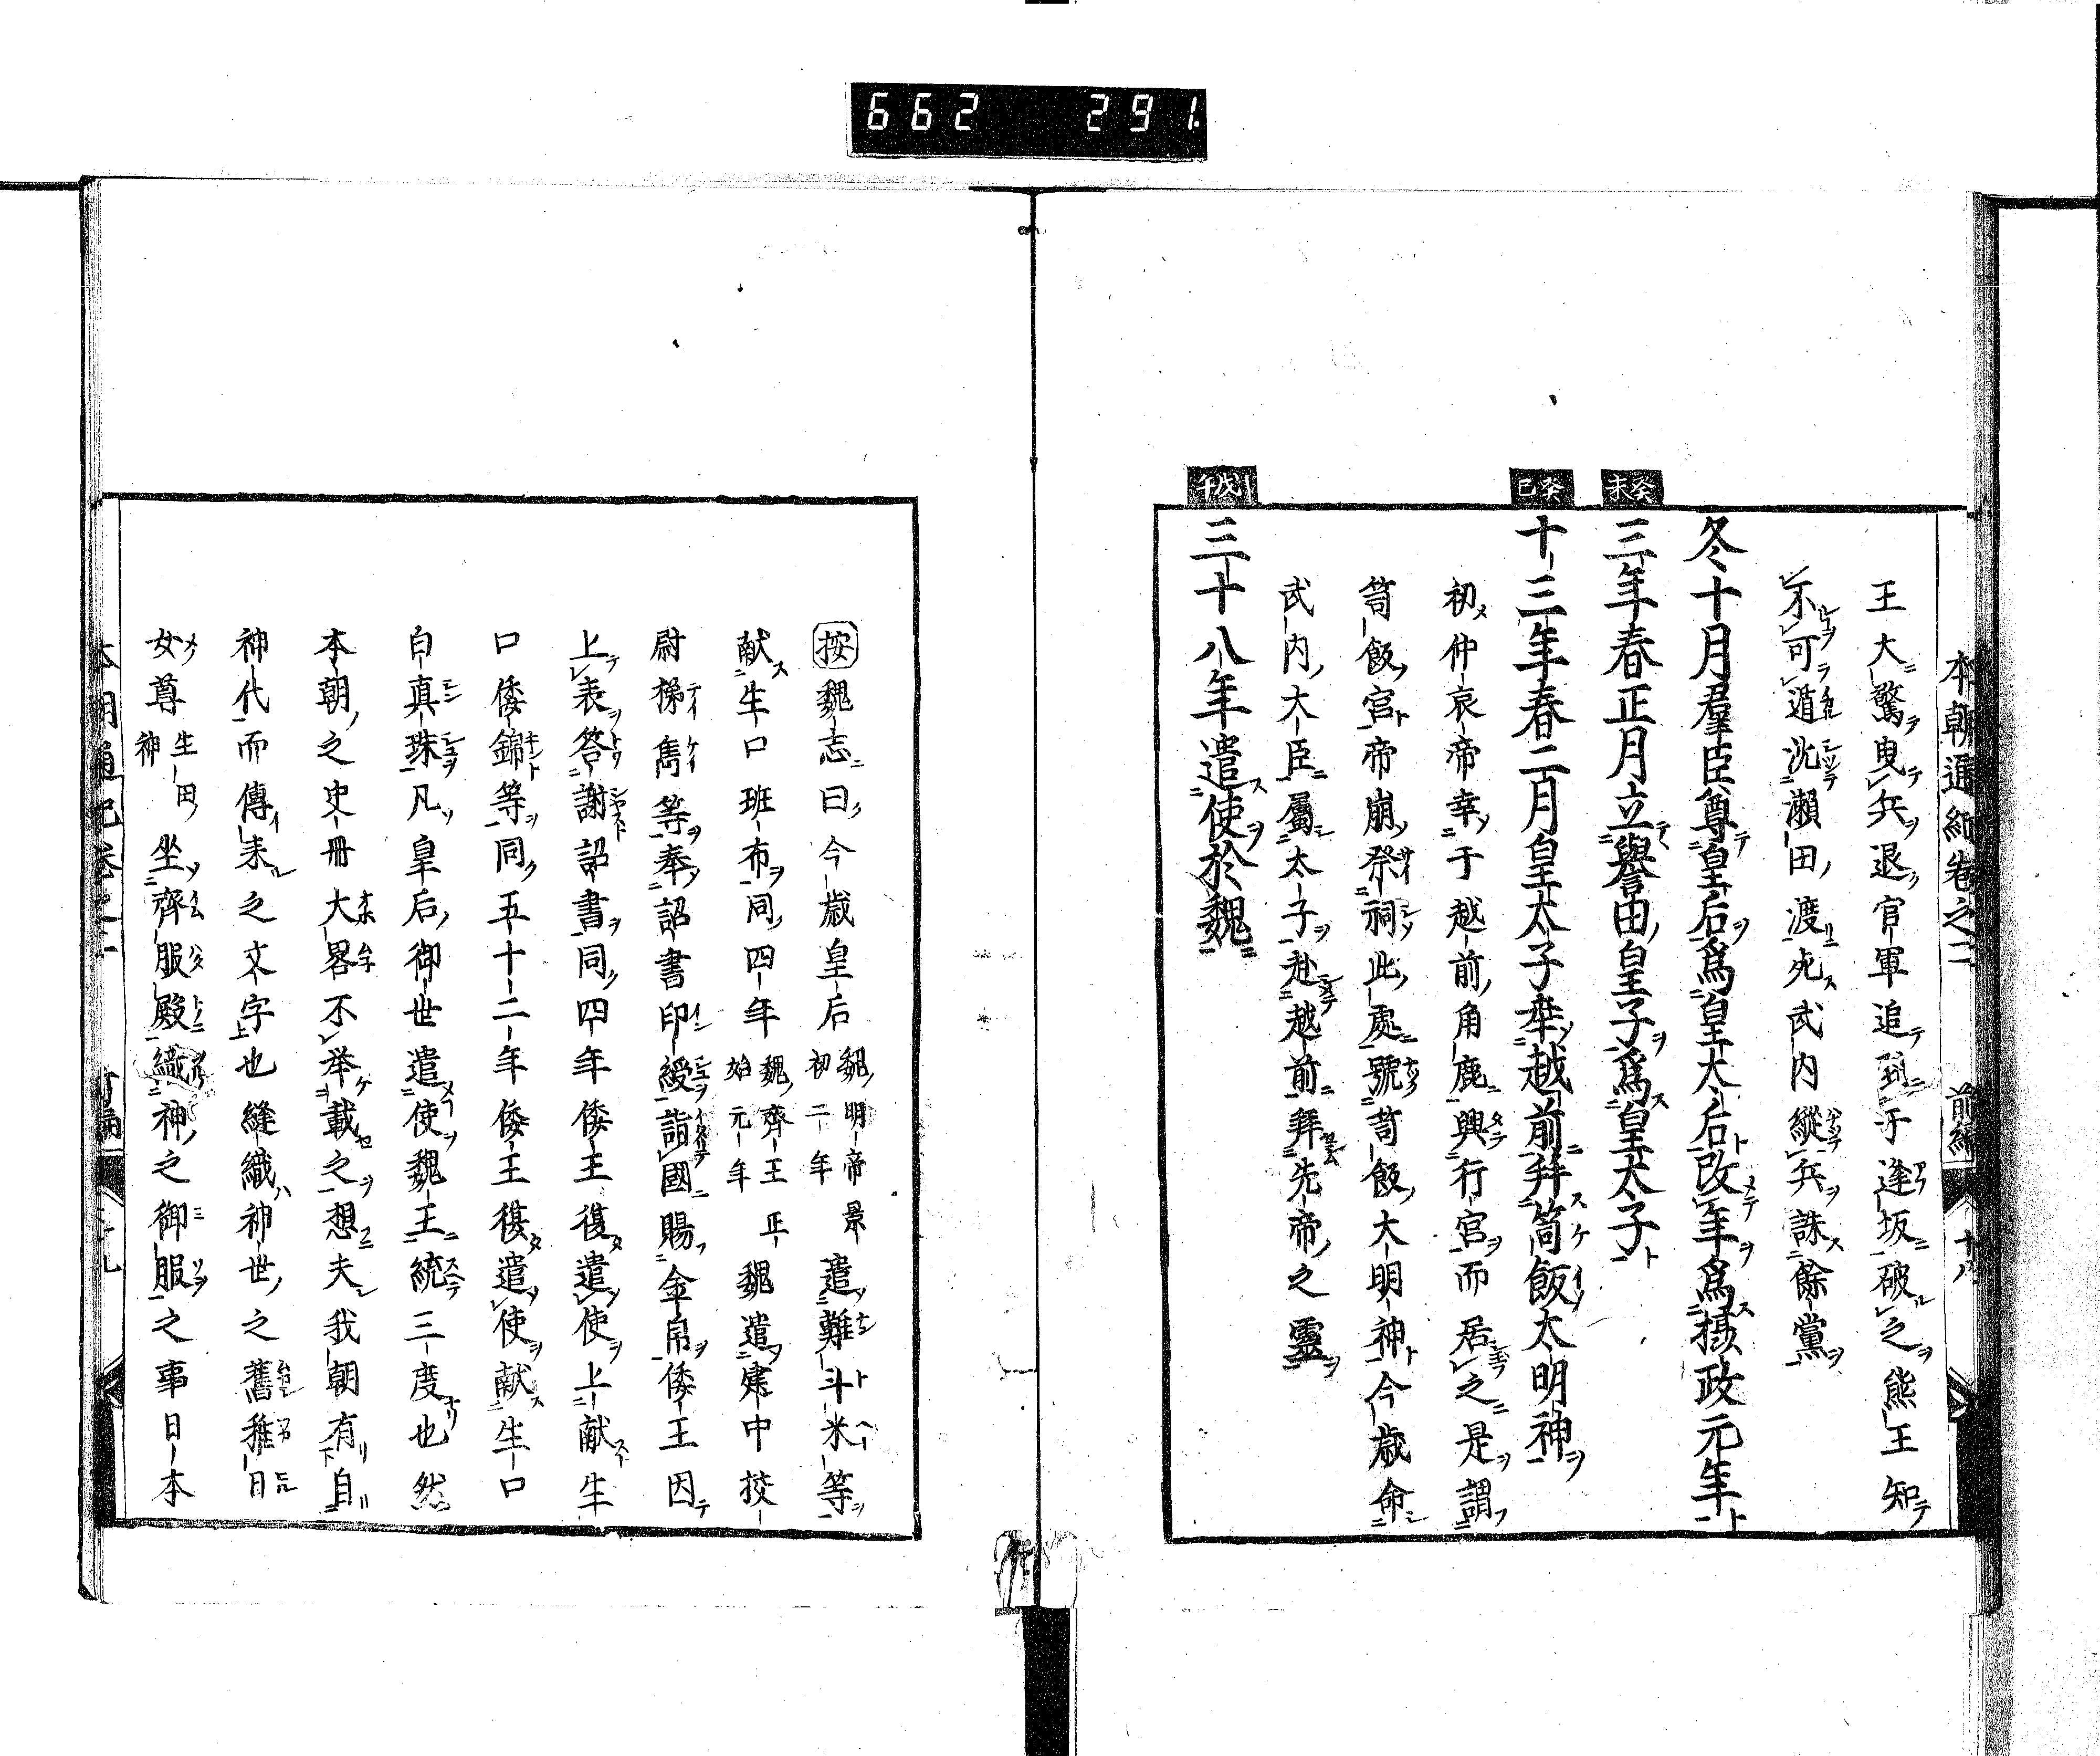 662 291
本朝通紀卷之二 前編 十八
王大驚曳兵退官軍追到于逢坂破之熊王知
不可遁沈瀬田渡死武内縱兵誅餘黨
冬十月羣臣尊皇后爲皇太后改年爲攝政元年
癸未
三年春正月立譽田皇子爲皇太子
癸巳
十三年春二月皇太子幸越前拜笥飯太明神
初仲哀帝幸于越前角鹿興行宮而居之是謂
笥飯宮帝崩祭祠此處號笥飯大明神今歳命
武内大臣屬太子赴越前拜先帝之靈
戊午
三十八年遣使於魏
按魏志曰今歳皇后魏明帝景初二年遣難斗米等
献生口班布同四年魏齊王正始元年魏遣建中挍
尉梯雋等奉詔書印綬詣國賜金帛倭王因
上表答謝詔書同四年倭王復遣使上献生
口倭錦等同五十二年倭王復遣使献生口
白真珠凡皇后御世遣使魏王統三度也然
本朝之史冊大畧不举載之想夫我朝有自
神代而傳来之文字也縫織神世之舊稚日
女尊生田神坐齊服殿織神之御服之事日本